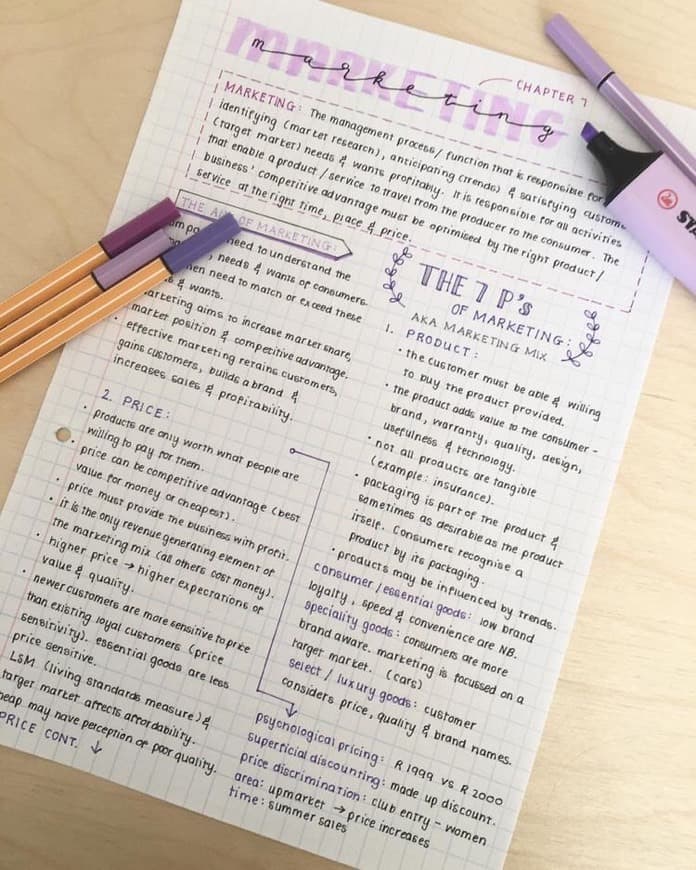 MARKETING
marketing
CHAPTER 7
MARKETING: The management process/function that is responsible for
identifying (market research), anticipating (trends) & satisfying custome
(target market) needs & wants profitably. It is responsible for all activities
that enable a product/service to travel from the producer to the consumer. The
business' competitive advantage must be optimised by the right product/
service at the right time, place & price.
THE AIM OF MARKETING:
need to understand the
needs & wants of consumers.
hen need to match or exceed these
& wants.
marketing aims to increase market share,
market position & competitive advantage.
• effective marketing retains customers,
gains customers, builds a brand &
increases sales & profitability.
2. PRICE:
• products are only worth what people are
willing to pay for them.
• price can be competitive advantage (best
value for money or cheapest).
• price must provide the business with profit.
• it is the only revenue generating element of
the marketing mix (all others cost money).
• higher price → higher expectations of
value & quality.
• newer customers are more sensitive to price
than existing loyal customers (price
sensitivity). essential goods are less
price sensitive.
LSM (living standards measure) &
target market affects affordability.
heap may have perception of poor quality.
PRICE CONT. ↓
THE 7 P's
OF MARKETING:
AKA MARKETING MIX
1. PRODUCT:
• the customer must be able & willing
to buy the product provided.
• the product adds value to the consumer -
brand, warranty, quality, design,
usefulness & technology.
• not all products are tangible
(example: insurance).
• packaging is part of the product &
sometimes as desirable as the product
itself. Consumers recognise a
product by its packaging.
• products may be influenced by trends.
consumer/essential goods: low brand
loyalty, speed & convenience are NB.
speciality goods: consumers are more
brand aware. marketing is focussed on a
target market. (cars)
select/luxury goods: customer
considers price, quality & brand names.
psychological pricing: R1999 vs R2000
superficial discounting: made up discount.
price discrimination: club entry - women
area: upmarket → price increases
time: summer sales
STA